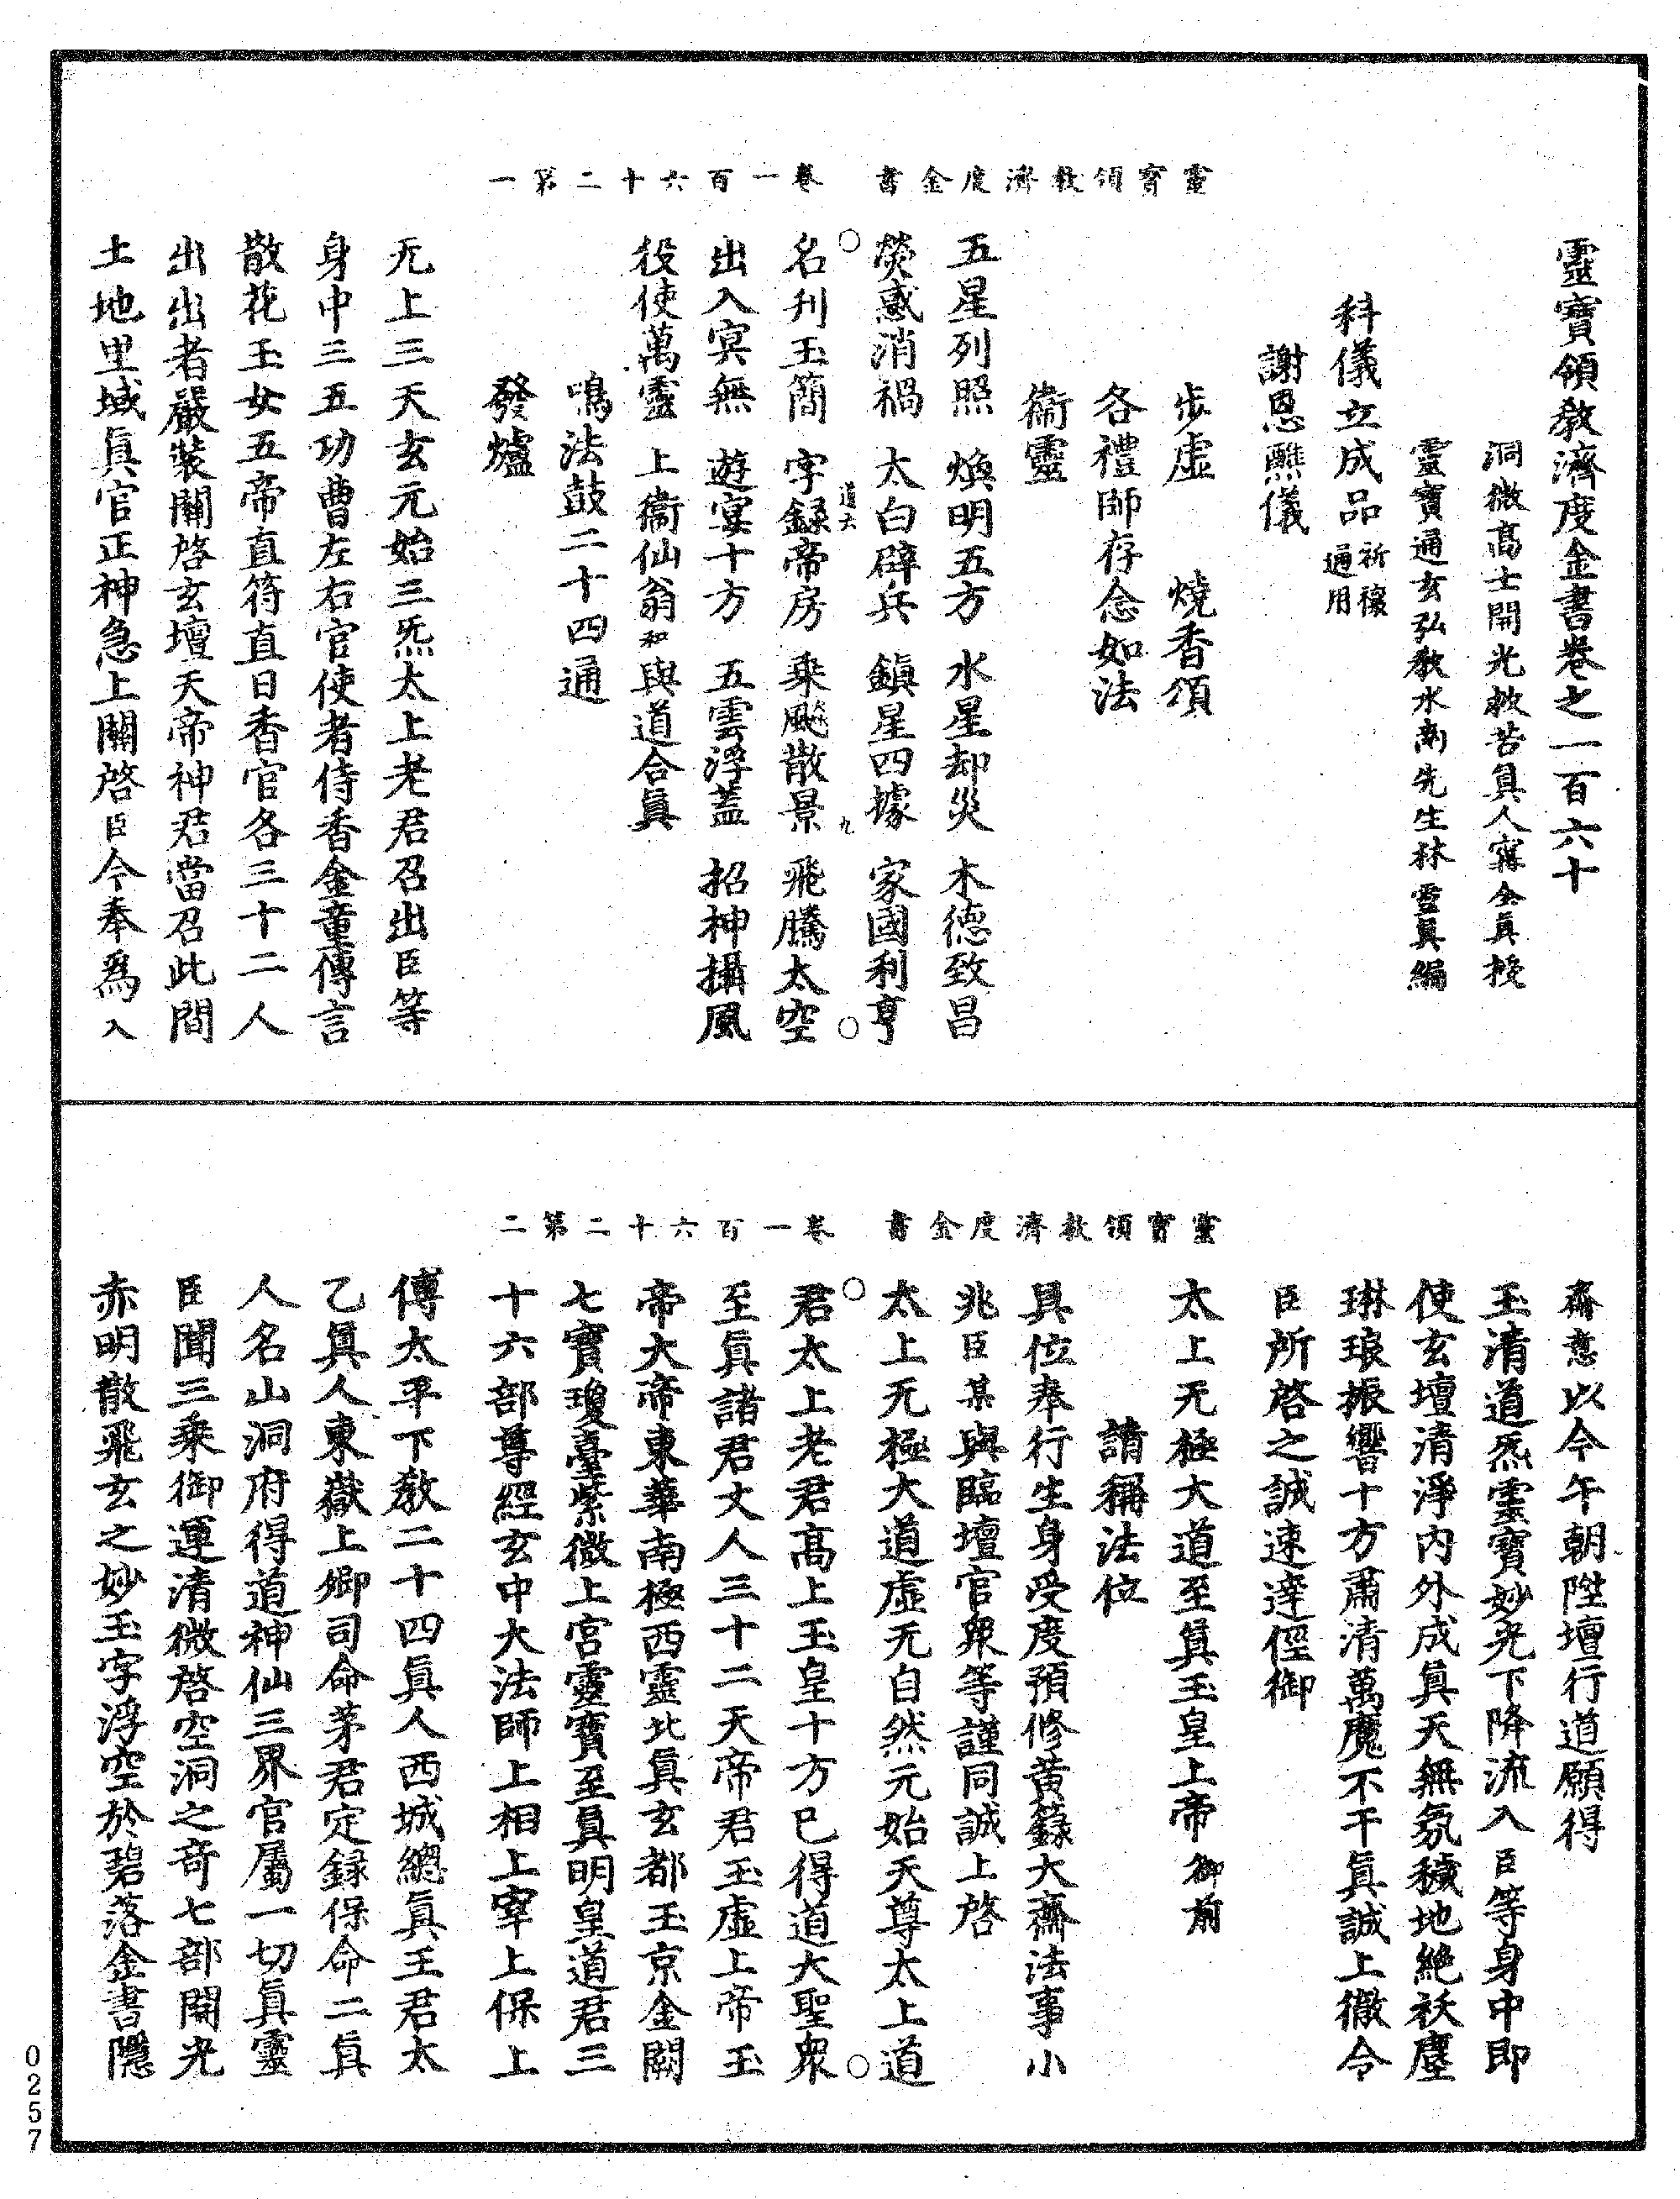 靈寶領教濟度金書　卷一百六十二第一
靈寶領敎濟度金書卷之一百六十
洞微高士開光救苦眞人甯全眞授
靈寶通玄弘敎水南先生林靈眞編
科儀立成品祈禳通用
謝恩醮儀
步虛　燒香頌
各禮師存念如法
衞靈
五星列照　煥明五方　水星却災　木德致昌
熒惑消禍　太白辟兵　鎭星四據　家國利亨
道大　九
名刋玉簡　字錄帝房　乘飈散景　飛騰太空
出入冥無　遊宴十方　五雲浮蓋　招神攝風
役使萬靈　上衞仙翁和與道合眞
鳴法鼓二十四通
發爐
无上三天玄元始三炁太上老君召出臣等
身中三五功曹左右官使者侍香金童傳言
散花玉女五帝直符直日香官各三十二人
出出者嚴裝關啓玄壇天帝神君當召此間
土地里域眞官正神急上關啓臣今奉爲入
靈寶領教濟度金書　卷一百六十二第二
齋意以今午朝陞壇行道願得
玉清道炁靈寶妙光下降流入臣等身中即
使玄壇清淨內外成眞天無氛穢地絕祅塵
琳琅振響十方肅清萬魔不干眞誠上徹令
臣所啓之誠速達徑御
太上无極大道至眞玉皇上帝御前
請稱法位
具位奉行生身受度預修黃籙大齋法事小
兆臣某與臨壇官衆等謹同誠上啓
太上无極大道虛无自然元始天尊太上道
君太上老君高上玉皇十方已得道大聖衆
至眞諸君丈人三十二天帝君玉虛上帝玉
帝大帝東華南極西靈北眞玄都玉京金闕
七寶瓊臺紫微上宮靈寶至眞明皇道君三
十六部尊經玄中大法師上相上宰上保上
傅太平下敎二十四眞人西城總眞王君太
乙眞人東嶽上卿司命茅君定錄保命二眞
人名山洞府得道神仙三界官屬一切眞靈
臣聞三乘御運清微啓空洞之奇七部開光
赤明散飛玄之妙玉字浮空於碧落金書隱
0257